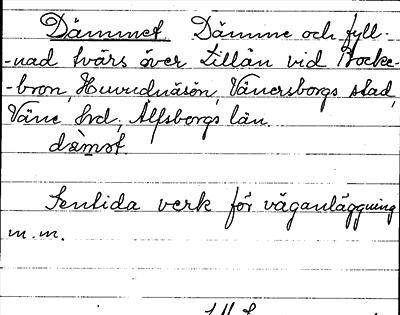 Dämmet Dämme och fyll-
-nad tvärs över Lillån vid Stocke-
-bron, Huvudnäsön, Vänersborgs stad,
Väne hrd, Älfsborgs län.
dæ̀mət.
Sentida verk för väganläggning
m.m.